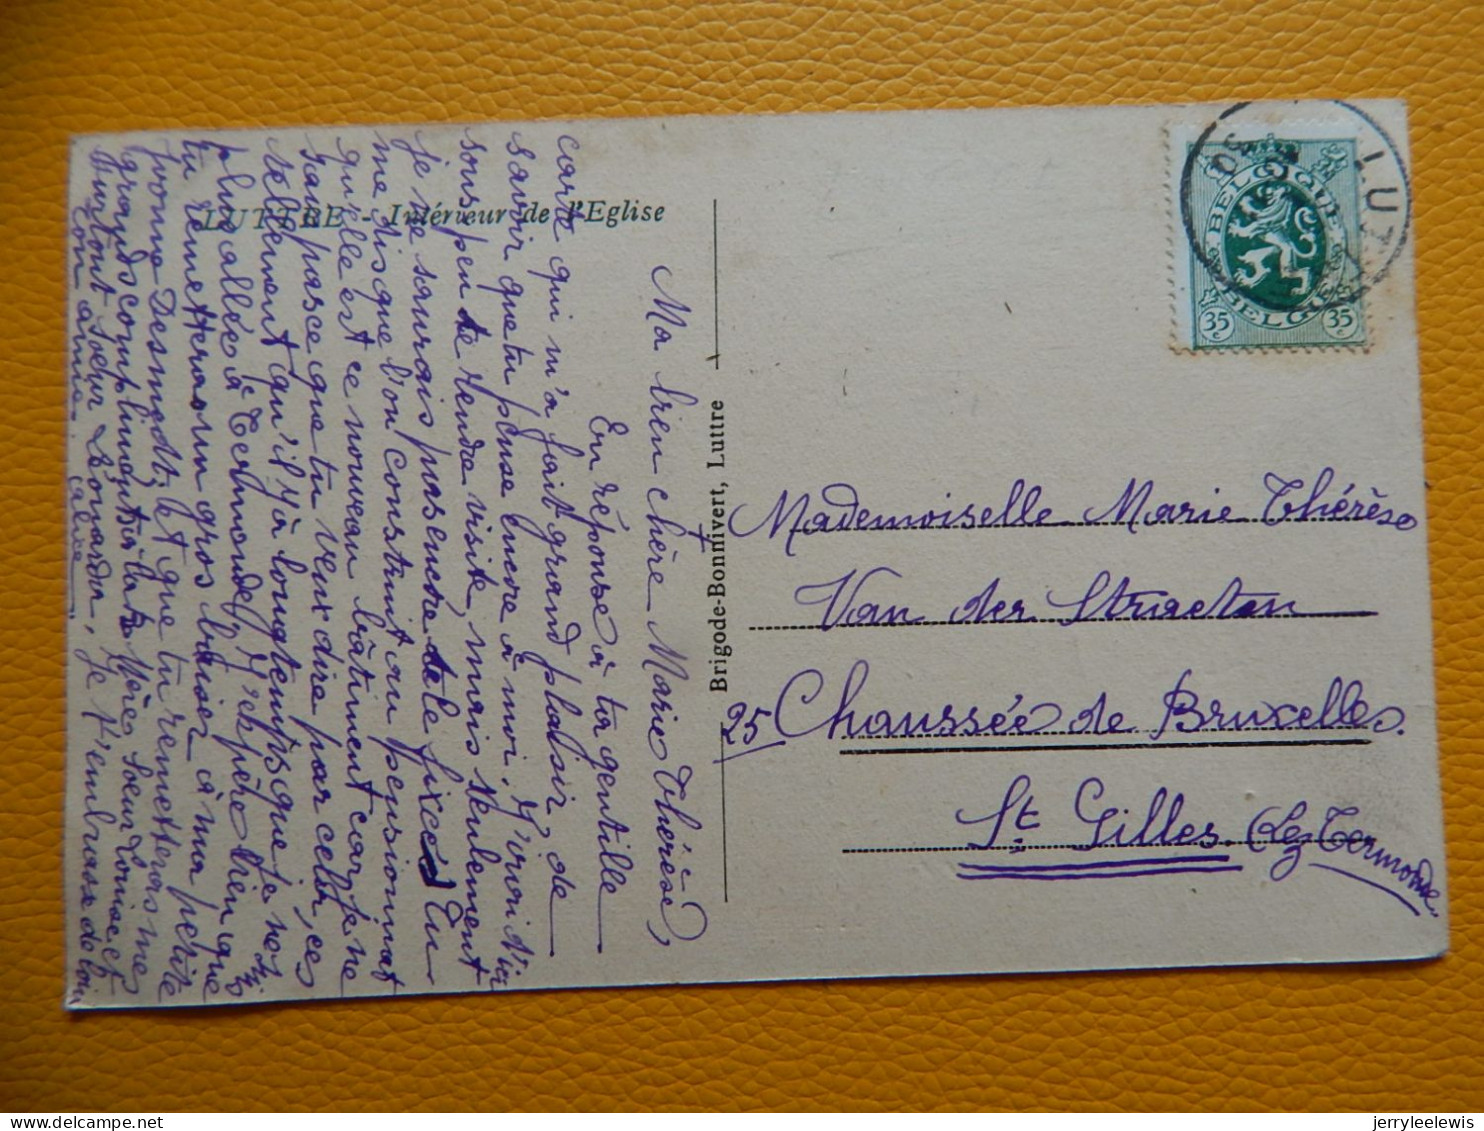 LUTTRE - Intérieur de l'Eglise
Ma bien chère Marie Thérèse,
En réponse à ta gentille
carte qui m'a fait grand plaisir, de
savoir que tu pense encore à moi. J'irai d'ici
sous peu te rendre visite, mais seulement
je ne saurais pas encore te le fixée. Tu
me dis que l'on construit au pensionnat
quelle est ce nouveau bâtiment car je ne
sais pas ce que tu veux dire par cela, ces
tellement qu'il y à longtemps que je ne suis
plus allée à Termonde. J'espère bien que
tu remetteras un gros baiser à ma petite
Yvonne Desmedt, et que tu remetteras mes
grands compliments à la Mère Soeur Louise et
surtout Soeur Léonarda, je t'embrasse de loin
ton amie.
Brigode-Bonnivert, Luttre
BELGIQUE
BELGIE
35 c
35 c
LUTT
Mademoiselle Marie Thérèse
Van der Straeten
25 Chaussée de Bruxelles.
St Gilles. lez Termonde
jerryleelewis